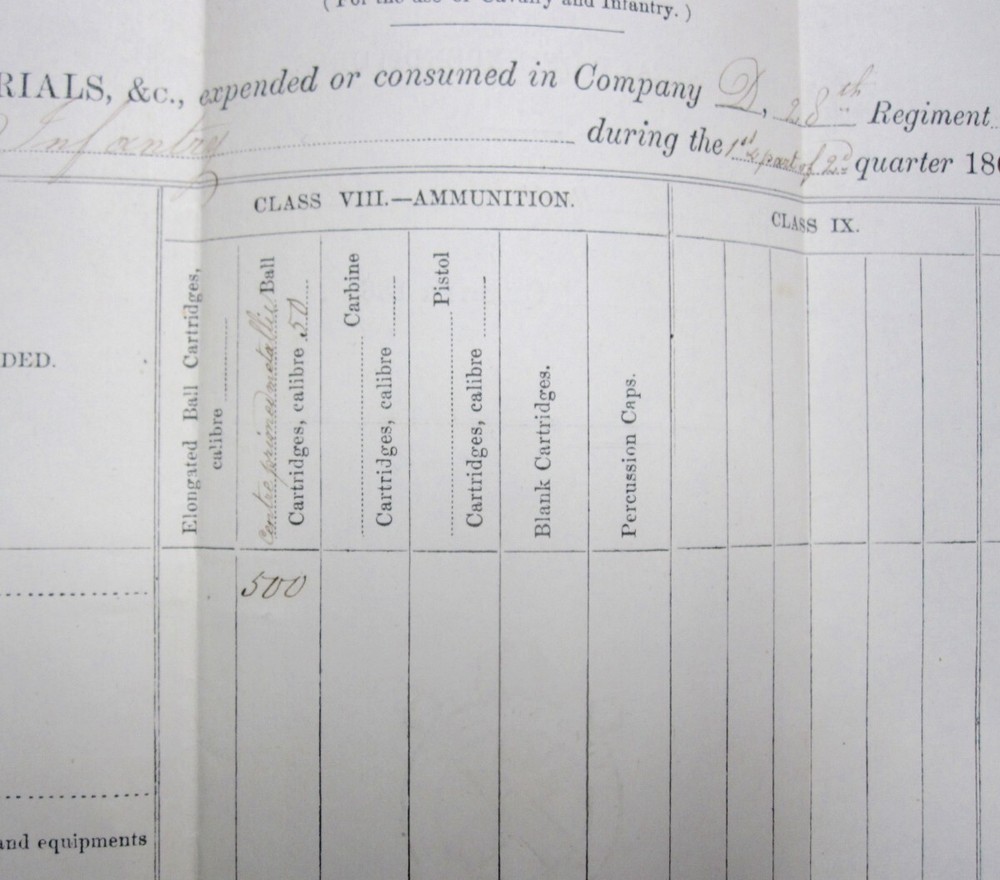 (For the use of Cavalry and Infantry.)
RIALS, &c., expended or consumed in Company D, 28th Regiment
Infantry during the 1st & part of 2d quarter 186
CLASS VIII.—AMMUNITION.
CLASS IX.
DED.
Elongated Ball Cartridges,
calibre
Centre primed metallic Ball
Cartridges, calibre .50
Carbine
Cartridges, calibre
Pistol
Cartridges, calibre
Blank Cartridges.
Percussion Caps.
500
and equipments